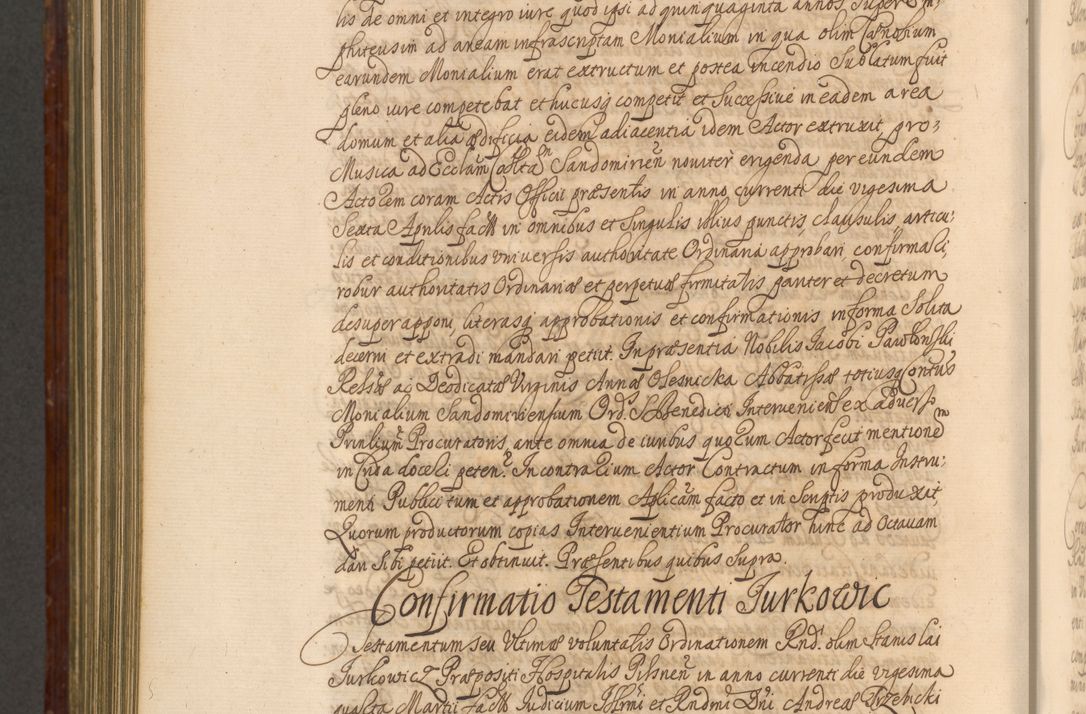 lis de omni et integro iure quod ipsi ad quinquaginta annos super Em:
phiteusim ad aream infrascriptam Monialium in qua olim Caenobium
earundem Monialium erat extructum et postea incendio sublatum fuit
pleno iure competebat et hucusq competit et successive in eadem area
domum et alia ædificia eidem adiacentia idem Actor extruxit, pro:
Musica ad Ecclam Collta Sandomirien noviter erigenda per eundem
Actorem coram Actis Officii præsentis in anno currenti die vigesima
Sexta Aprilis factt in omnibus et singulis illius punctis clausulis articu:
lis et conditionibus universis authoritate Ordinaria approbari, confirmari,
robur authoritatis Ordinariæ et perpetuæ firmitatis pariter et decretum
desuper apponi, literasq approbationis et confirmationis in forma Solita
decerni et extradi mandari petiit. In præsentia Nobilis Iacobi Pawłowski
Relsæ ac Deodicatæ Virginis Annæ Olesnicka Abbatissæ totiusq Contus
Monialium Sandomiriensium Ord. S. Benedicti Intervenien ex adverso
Prinlium Procuratoris, ante omnia de iuribus quorum Actor fecit mentionem
in Cita doceri peten. In contrarium Actor Contractum in forma Instru:
menti Publici tum et approbationem Aplicam facto et in Scriptis produxit,
Quorum productorum copias Intervenientium Procurator hinc ad Octavam
dari sibi petiit. Et obtinuit. Præsentibus quibus supra.
Confirmatio Testamenti Jurkowic
Testamentum seu Ultimæ voluntatis Ordinationem Rnd. olim Stanislai
Jurkowicz Præpositi Hospitalis Pilsnen in anno currenti die vigesima
quarta Martii factt Iudicium Illmi et Rndmi Dni Andreæ Trzebicki